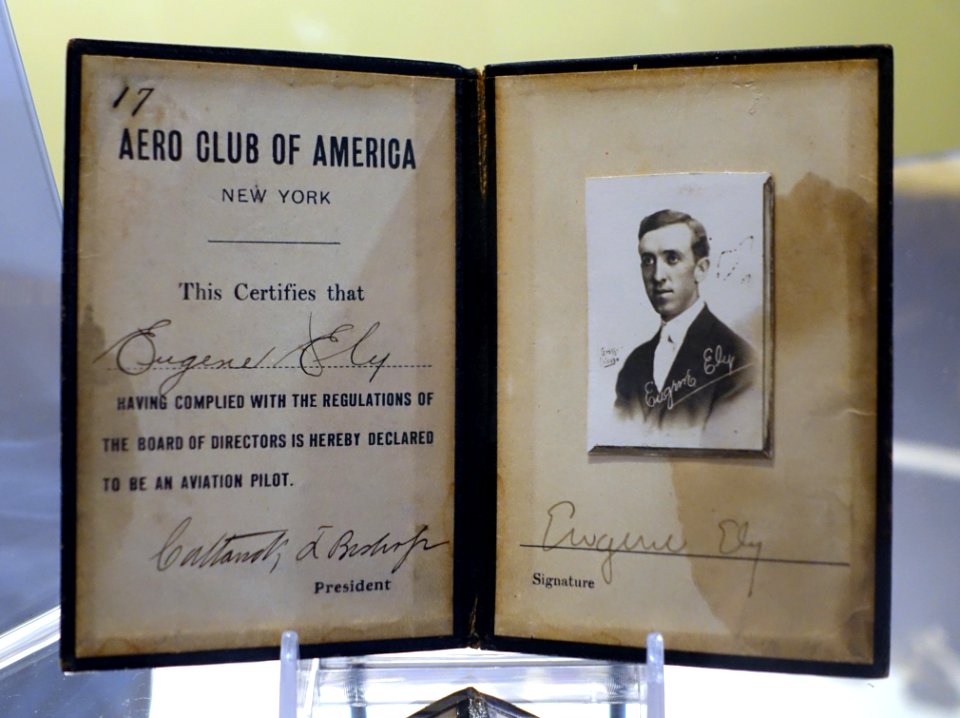 17
AERO CLUB OF AMERICA
NEW YORK
This Certifies that
Eugene Ely
HAVING COMPLIED WITH THE REGULATIONS OF
THE BOARD OF DIRECTORS IS HEREBY DECLARED
TO BE AN AVIATION PILOT.
Cortlandt F Bishop
President
Eugene Ely
Eugene Ely
Signature